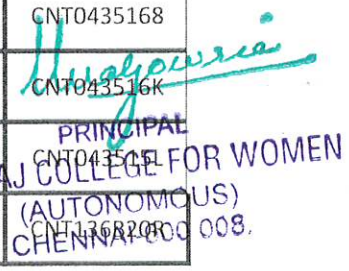 CNT0435168
CNT043516K
PRINCIPAL
CNT043515L
AJ COLLEGE FOR WOMEN
(AUTONOMOUS)
CNT136B20R
CHENNAI-600 008.